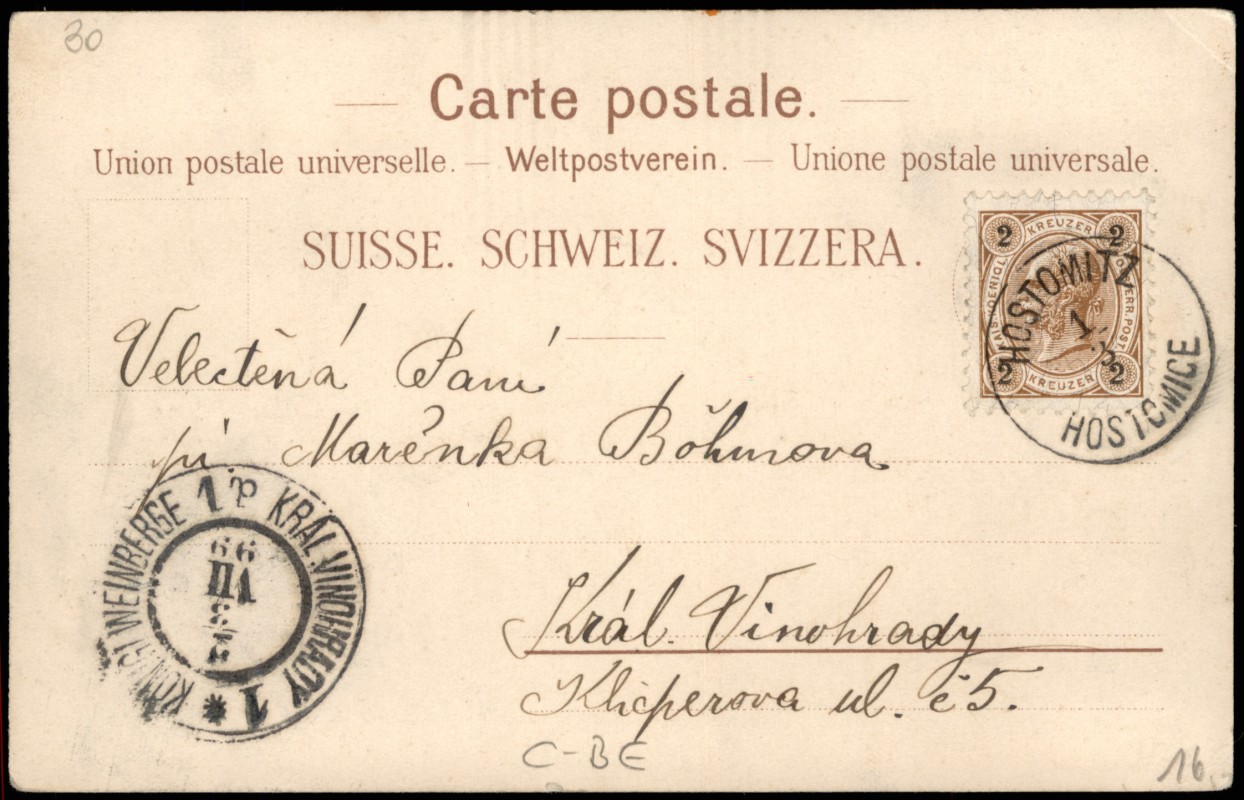 30
Carte postale.
Union postale universelle. — Weltpostverein. — Unione postale universale.
SUISSE. SCHWEIZ. SVIZZERA.
2 KREUZER 2
2 KREUZER 2
HOSTOMITZ
1
HOSTOMICE
Velectěná Paní
pí. Marěnka Böhmova
WEINBERGE 1 KRÁL. VINOHRADY 1
99
VII
Král. Vinohrady
Klicperova ul. č 5.
C-BE
16,-